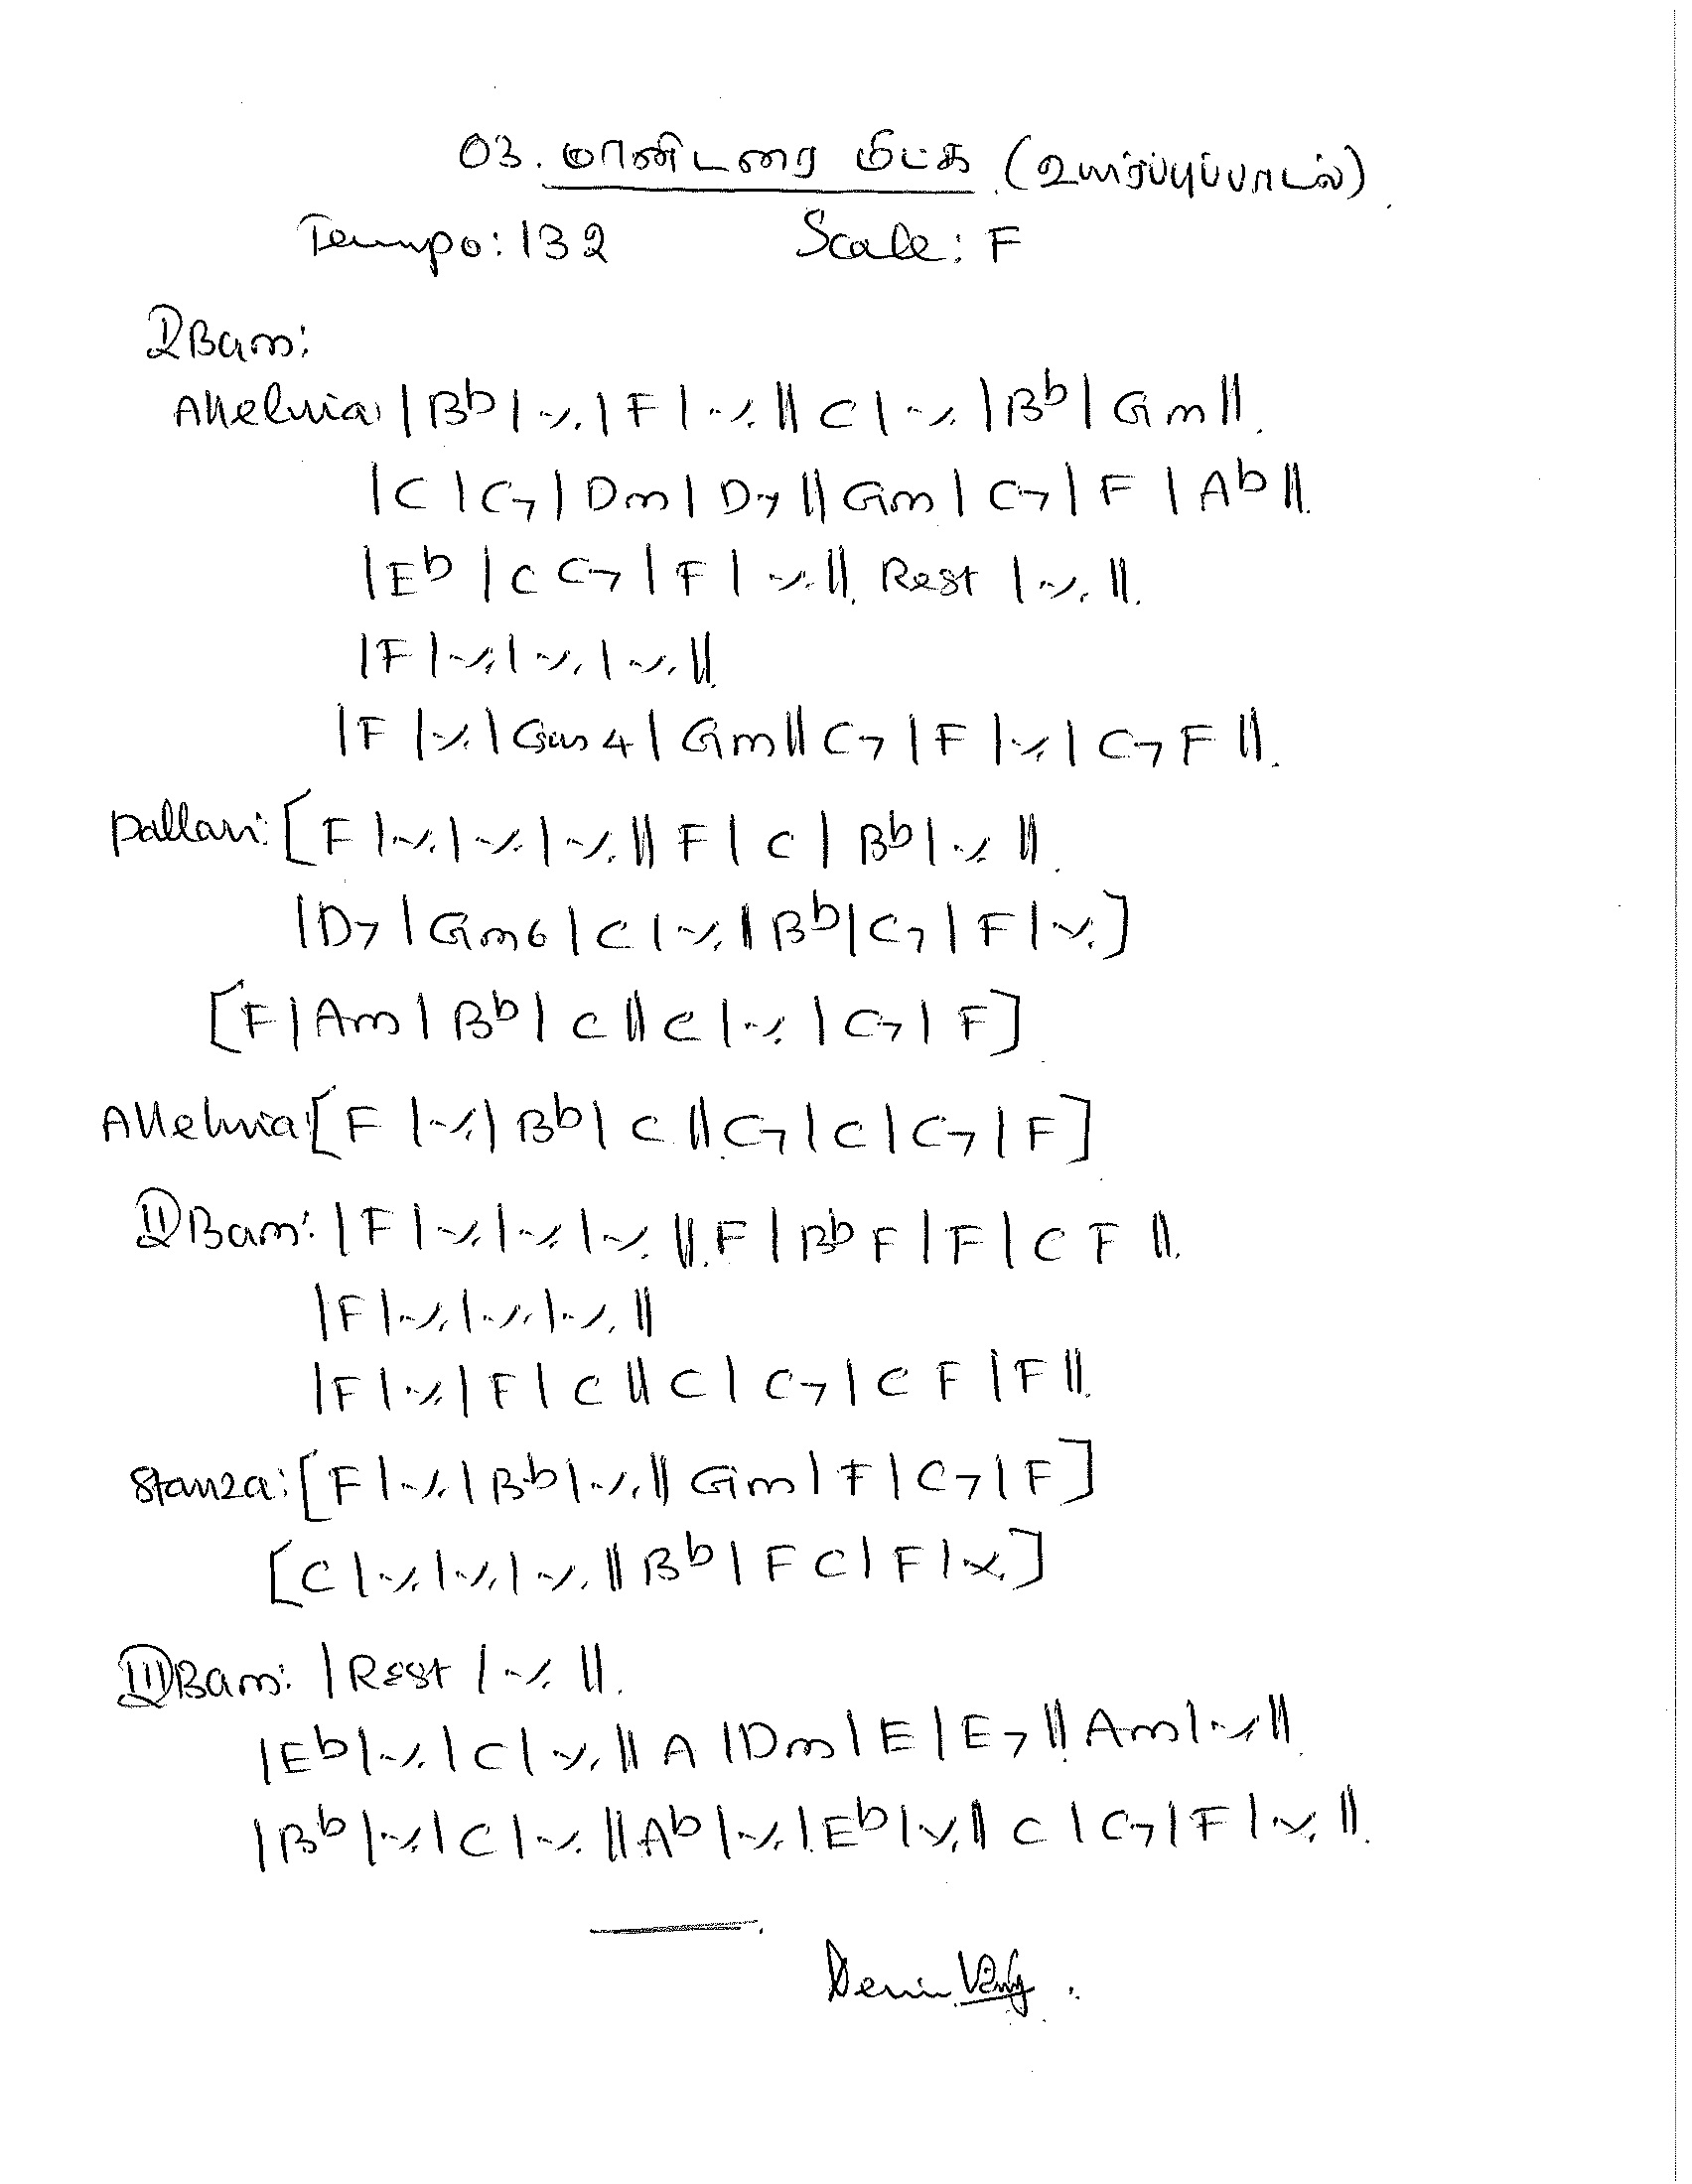 03. மானிடரை மீட்க (உயிர்ப்புப்பாடல்)
Tempo: 132 Scale: F
I Bam:
Alleluia: | Bb | ٪ | F | ٪ || C | ٪ | Bb | Gm ||
| C | C7 | Dm | D7 || Gm | C7 | F | Ab ||
| Eb | C C7 | F | ٪ || Rest | ٪ ||
| F | ٪ | ٪ | ٪ ||
| F | ٪ | Gsus4 | Gm || C7 | F | ٪ | C7 F ||
Pallavi: [ F | ٪ | ٪ | ٪ || F | C | Bb | ٪ ||
| D7 | Gm6 | C | ٪ || Bb | C7 | F | ٪ ]
[ F | Am | Bb | C || C | ٪ | C7 | F ]
Alleluia: [ F | ٪ | Bb | C || C7 | C | C7 | F ]
II Bam: | F | ٪ | ٪ | ٪ || F | Bb F | F | C F ||
| F | ٪ | ٪ | ٪ ||
| F | ٪ | F | C || C | C7 | C F | F ||
Stanza: [ F | ٪ | Bb | ٪ || Gm | F | C7 | F ]
[ C | ٪ | ٪ | ٪ || Bb | F C | F | ٪ ]
III Bam: | Rest | ٪ ||
| Eb | ٪ | C | ٪ || A | Dm | E | E7 || Am | ٪ ||
| Bb | ٪ | C | ٪ || Ab | ٪ | Eb | ٪ || C | C7 | F | ٪ ||